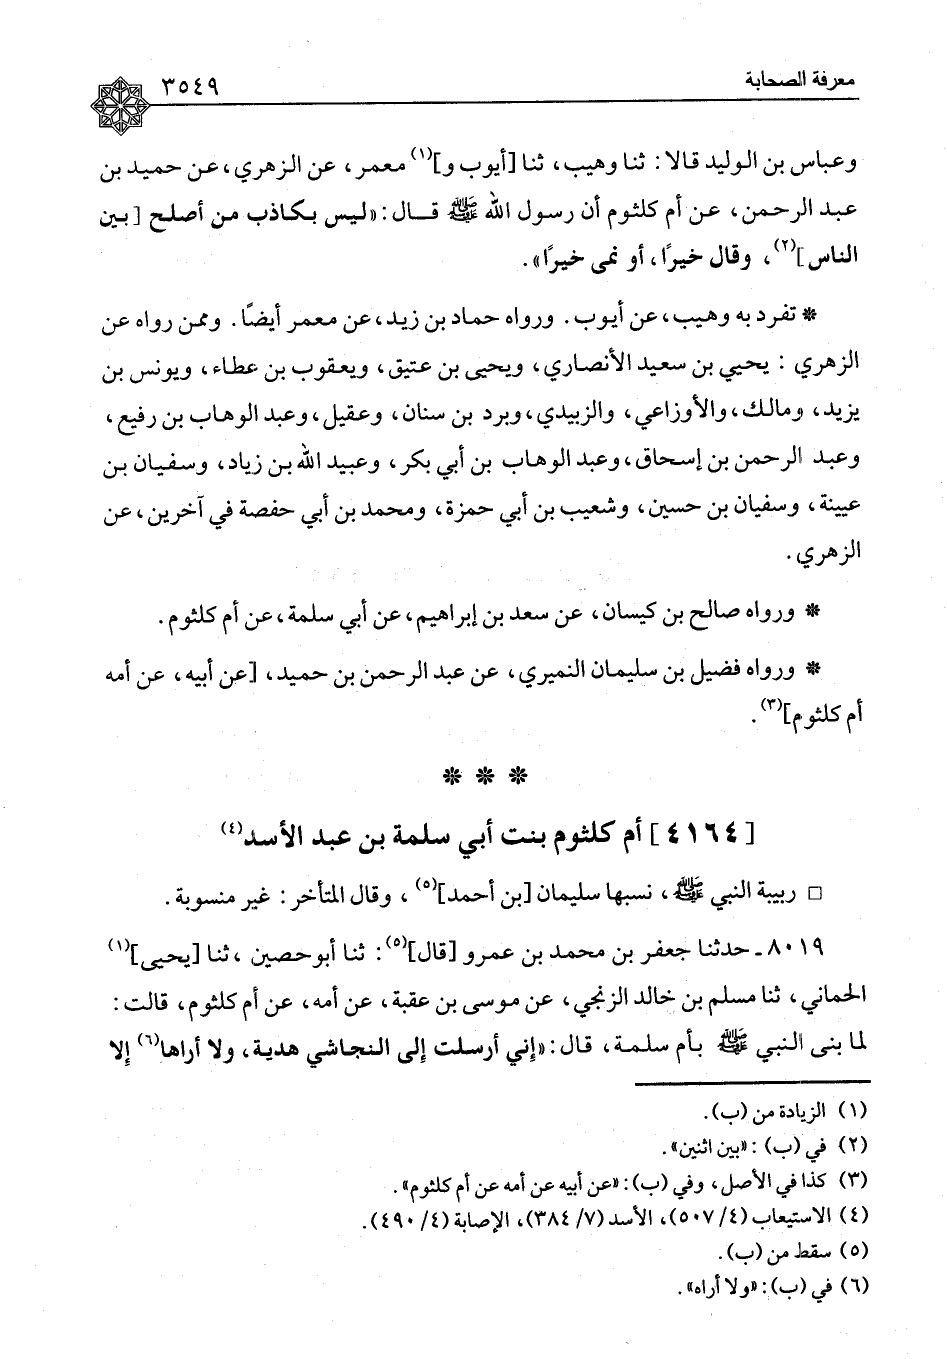 معرفة الصحابة ٣٥٤٩
وعباس بن الوليد قالا: ثنا وهيب، ثنا [أيوب و](١) معمر، عن الزهري، عن حميد بن
عبد الرحمن، عن أم كلثوم أن رسول الله ﷺ قال: «ليس بكاذب من أصلح [بين
الناس](٢)، وقال خيرًا، أو نمى خيرًا».
* تفرد به وهيب، عن أيوب. ورواه حماد بن زيد، عن معمر أيضًا. وممن رواه عن
الزهري : يحيي بن سعيد الأنصاري، ويحيى بن عتيق، ويعقوب بن عطاء، ويونس بن
يزيد، ومالك، والأوزاعي، والزبيدي، وبرد بن سنان، وعقيل، وعبد الوهاب بن رفيع،
وعبد الرحمن بن إسحاق، وعبد الوهاب بن أبي بكر، وعبيد الله بن زياد، وسفيان بن
عيينة، وسفيان بن حسين، وشعيب بن أبي حمزة، ومحمد بن أبي حفصة في آخرين، عن
الزهري.
* ورواه صالح بن كيسان، عن سعد بن إبراهيم، عن أبي سلمة، عن أم كلثوم.
* ورواه فضيل بن سليمان النميري، عن عبد الرحمن بن حميد، [عن أبيه، عن أمه
أم كلثوم](٣).
* * *
[٤١٦٤] أم كلثوم بنت أبي سلمة بن عبد الأسد(٤)
□ ربيبة النبي ﷺ، نسبها سليمان [بن أحمد](٥)، وقال المتأخر: غير منسوبة.
٨٠١٩ـ حدثنا جعفر بن محمد بن عمرو [قال](٥): ثنا أبو حصين، ثنا [يحيى](١)
الحماني، ثنا مسلم بن خالد الزنجي، عن موسى بن عقبة، عن أمه، عن أم كلثوم، قالت:
لما بنى النبي ﷺ بأم سلمة، قال: «إني أرسلت إلى النجاشي هدية، ولا أراها(٦) إلا
(١) الزيادة من (ب).
(٢) في (ب) : «بين اثنين».
(٣) كذا في الأصل، وفي (ب): «عن أبيه عن أمه عن أم كلثوم».
(٤) الاستيعاب (٤/ ٥٠٧)، الأسد (٧/ ٣٨٤)، الإصابة (٤/ ٤٩٠).
(٥) سقط من (ب).
(٦) في (ب): «ولا أراه».